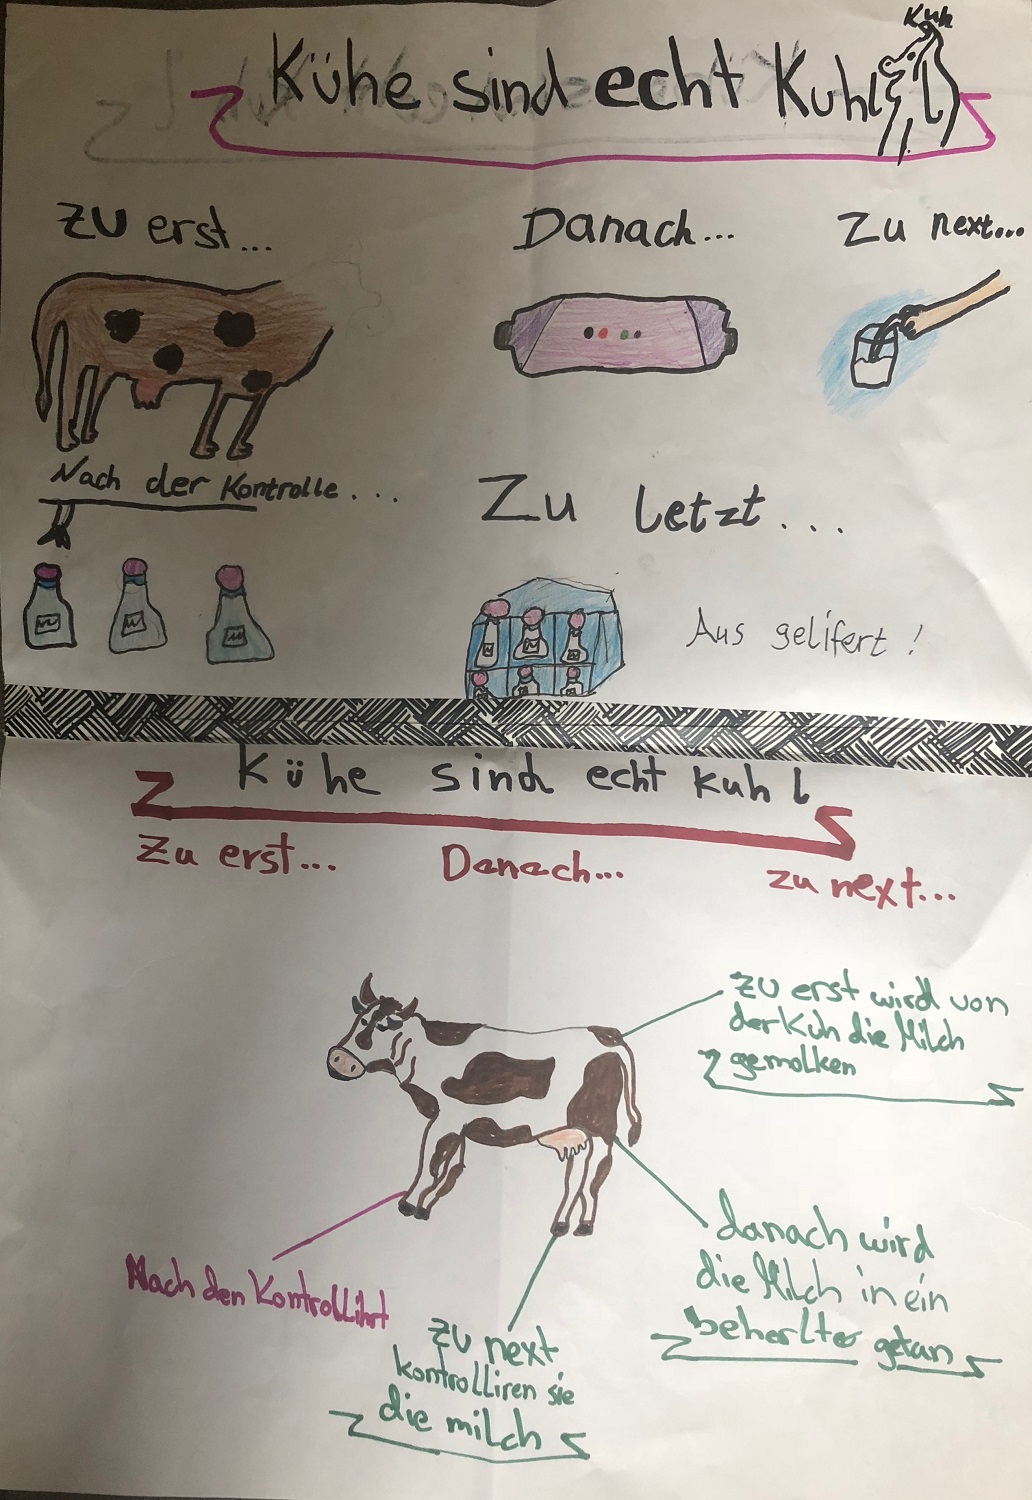 Kuh
Kühe sind echt Kuhl
Zu erst...
Danach...
Zu next...
Nach der Kontrolle...
Zu letzt...
Aus gelifert!
Kühe sind echt kuhl
Zu erst...
Danach...
zu next...
zu erst wird von
der Kuh die Milch
gemolken
danach wird
die Milch in ein
beherlter getan
Nach den Kontrollihrt
zu next
kontrolliren sie
die milch